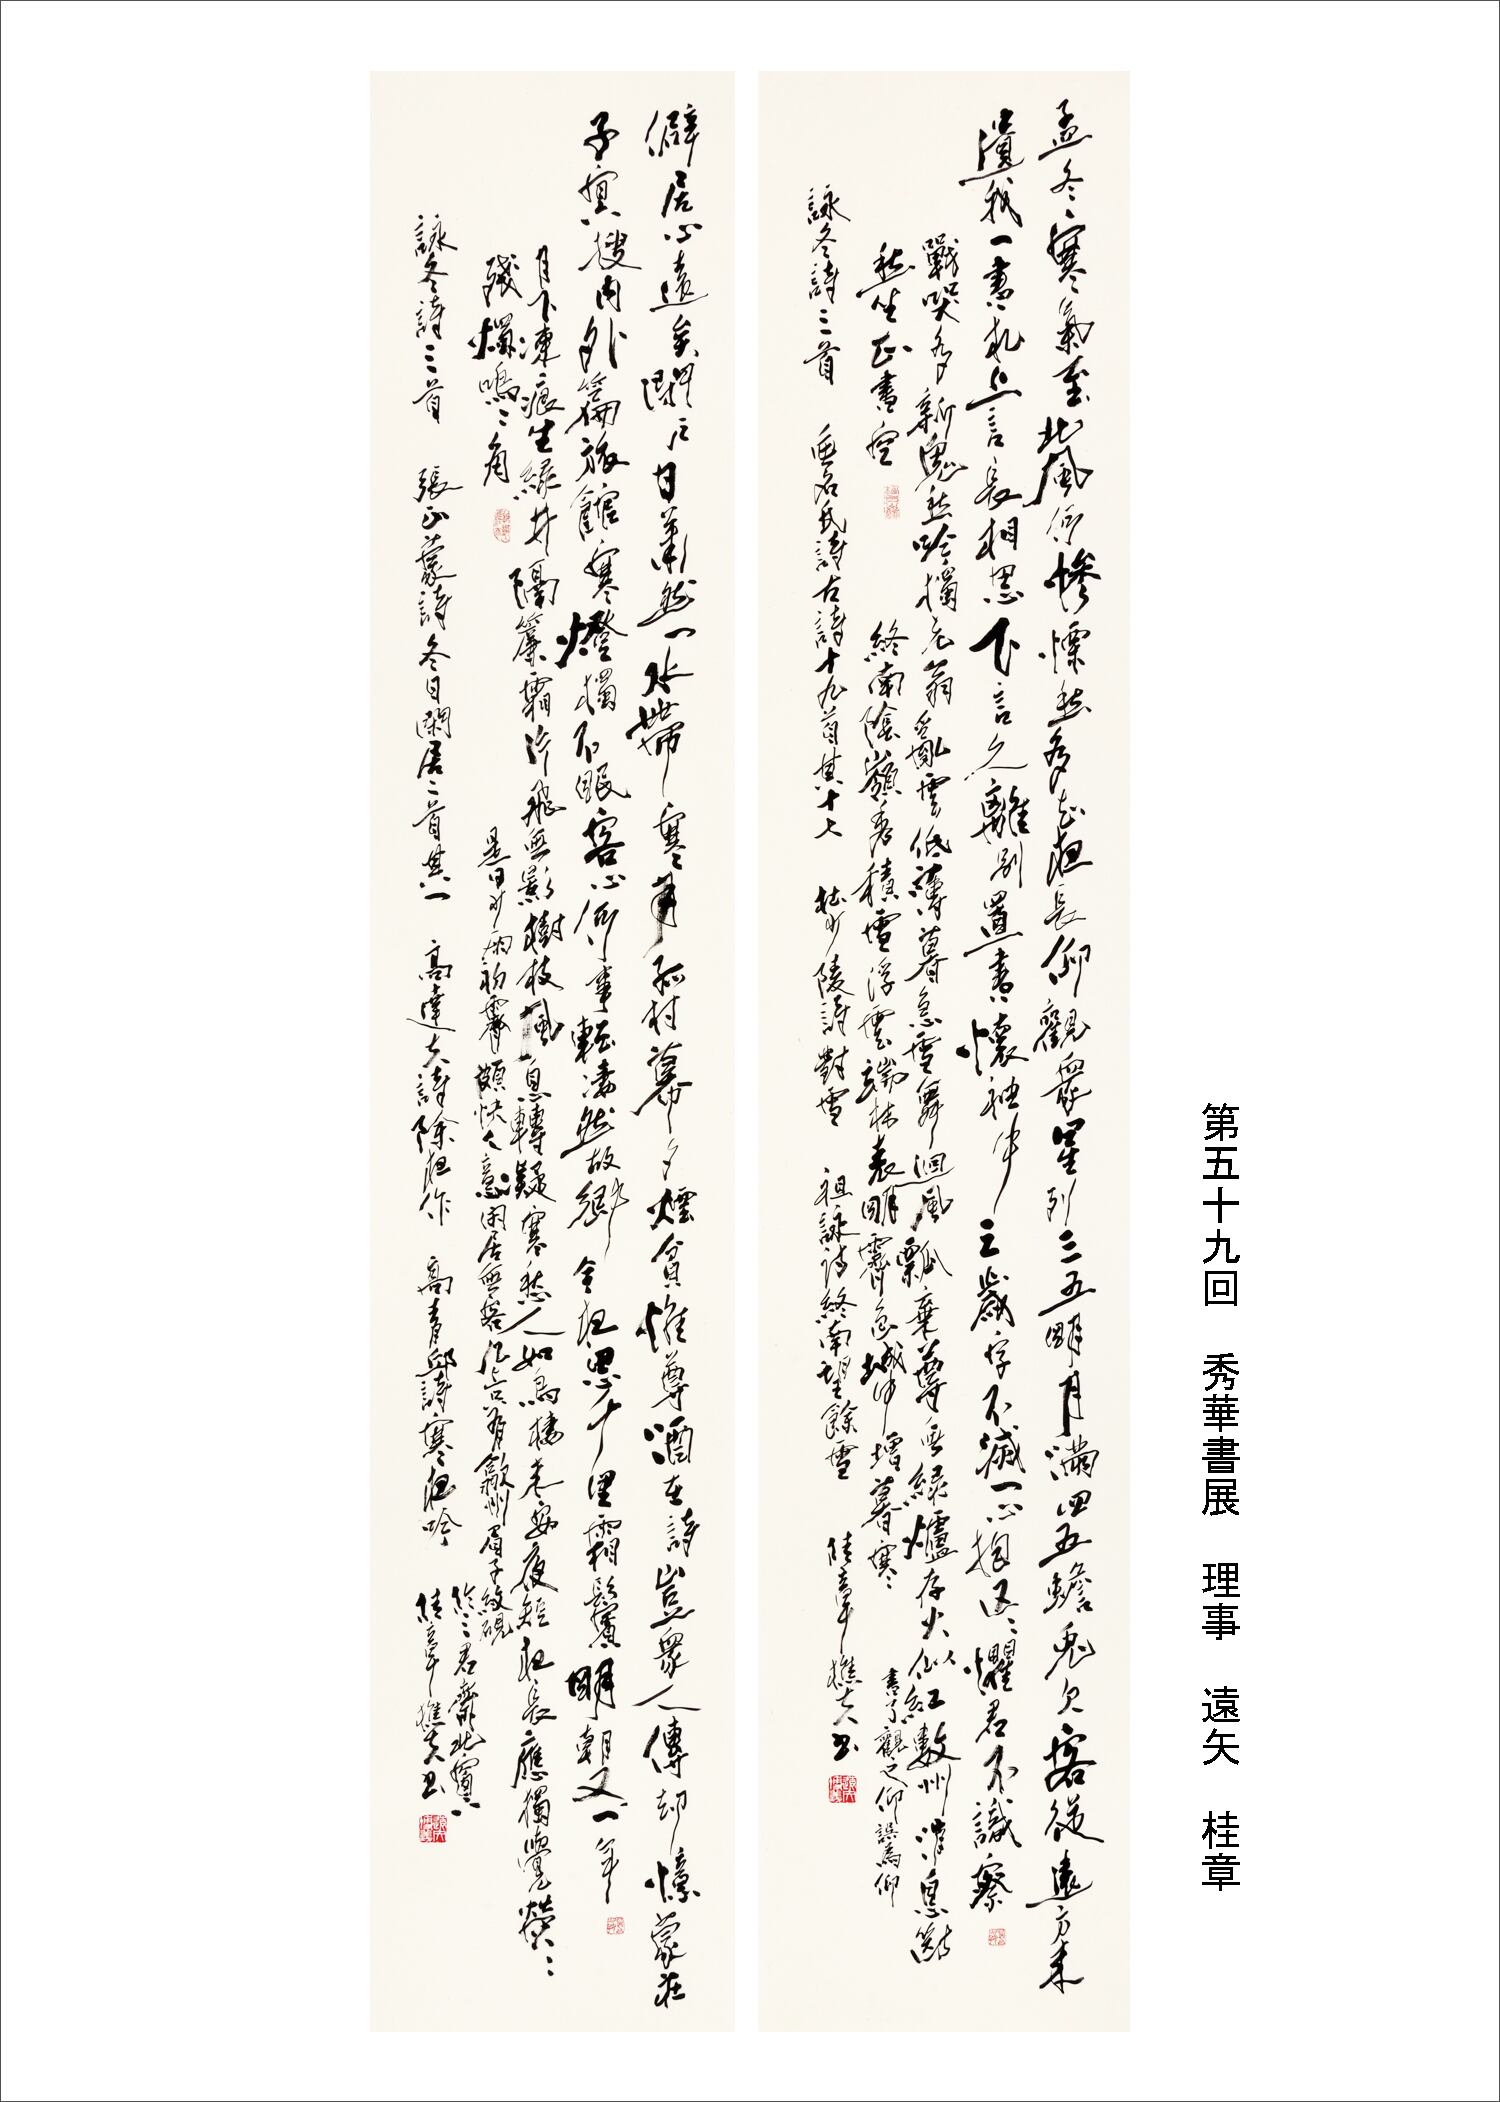 第五十九回　秀華書展　理事　遠矢　桂章
孟冬寒氣至北風何惨慄愁多知夜長仰觀衆星列三五明月滿四五蟾兔欠客從遠方来
遺我一書札上言長相思下言久離別置書懐袖中三歳字不滅一心抱区〻懼君不識察
戰哭多新鬼愁吟獨老翁亂雲低薄暮急雪舞廻風瓢棄尊無緑爐存火似紅數州消息断
愁坐正書空　終南陰嶺秀積雪浮雲端林表明霽色城中増暮寒　書了觀之仰誤為仰
詠冬詩三首　無名氏詩古詩十九首其十七　杜少陵詩對雪　祖詠詩終南望餘雪　桂章樵夫書
僻居心遠矣閑戸日蕭然一水帯寒月孤村幕夕煙貧惟尊酒在詩豈衆人傳却憶蒙荘
子冥搜内外篇旅館寒燈獨不眠客心何事転凄然故郷今夜思千里霜鬢明朝又一年
月下凍痕生緑井隔簾霜片飛無影樹枝風息轉凝寒愁人如鳥棲未安夜短夜長應獨覺熒〻
殘燭鳴〻角　是日少雨初霽頗快人意閑居無客几上只有歙州眉子紋硯
詠冬詩三首　張正蒙詩冬日閑居二首其一　高達夫詩除夜作　高青邱詩寒夜吟
桂章樵夫書